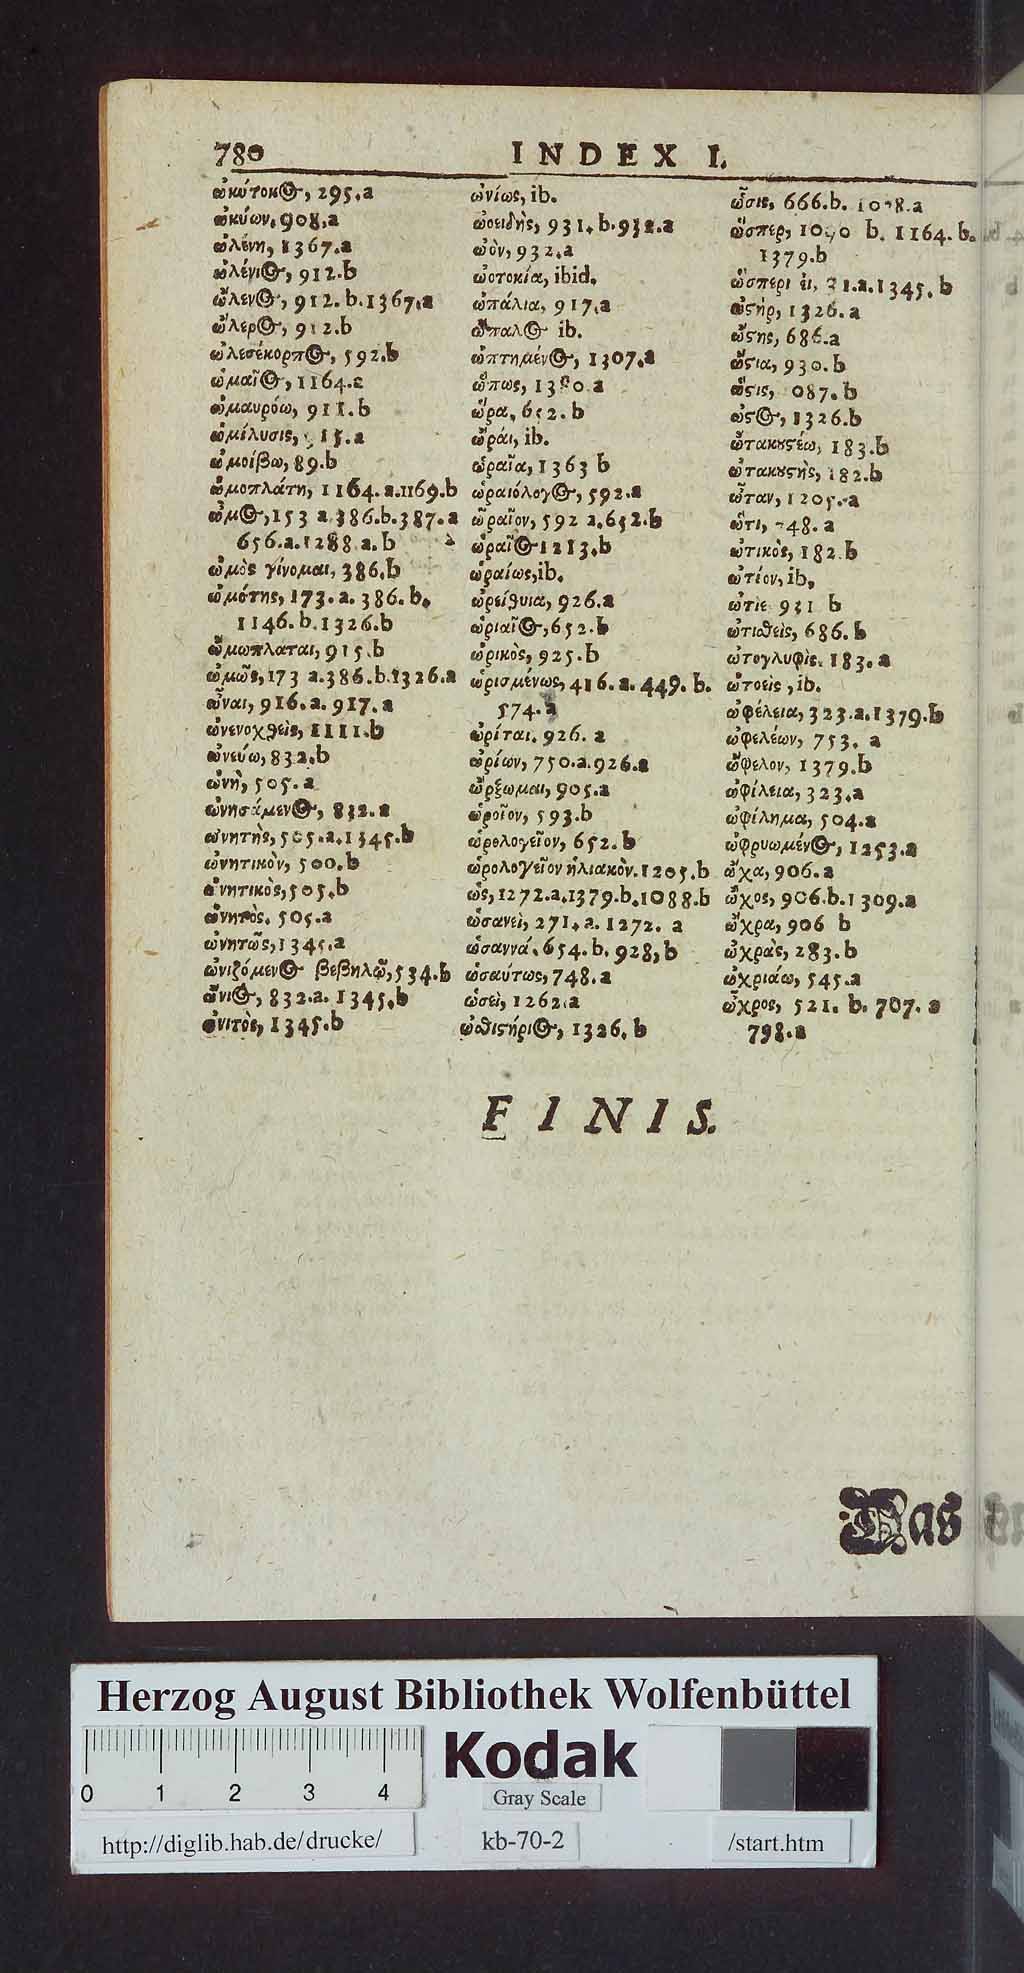 780
INDEX I.
ὠκύτοκος, 295.a
ὠκύων, 908.a
ὠλένη, 1367.a
ὠλένιος, 912.b
ὦλενος, 912.b.1367.a
ὦλερος, 912.b
ὠλεσέκορπος, 592.b
ὠμαῖος, 1164.
ὠμαυρόω, 911.b
ὠμίλυσις, 15.a
ὠμοίβω, 89.b
ὠμοπλάτη, 1164.a.1169.b
ὦμος, 153 a.386.b.387.a
656.a.1288.a.b
ὠμὸς γίνομαι, 386.b
ὠμότης, 173.a. 386.b.
1146.b.1326.b
ὦμωπλαται, 915.b
ὠμῶς, 173 a.386.b.1326.a
ὦναι, 916.a. 917.a
ὠνενοχθεὶς, 1111.b
ὠνεύω, 832.b
ὠνὴ, 505.a
ὠνησάμενος, 832.a
ὠνητὴς, 505.a.1345.b
ὠνητικὸν, 500.b
ὠνητικὸς, 505.b
ὠνητὸς, 505.a
ὠνητῶς, 1345.a
ὠνιζόμενος βεβηλῷ, 534.b
ὤνιος, 832.a. 1345.b
ὠνιτὸς, 1345.b
ὠνίως, ib.
ὠοειδὴς, 931.b.932.a
ὠὸν, 932.a
ὠοτοκία, ibid.
ὠπάλια, 917.a
ὤπαλος ib.
ὠπτημένος, 1307.a
ὥπως, 1380.a
ὥρα, 652.b
ὧράι, ib.
ὡραῖα, 1363 b
ὡραιόλογος, 592.a
ὧραῖον, 592 a.652.b
ὡραῖος 1213.b
ὡραίως, ib.
ὠρείθυια, 926.a
ὡριαῖος, 652.b
ὡρικὸς, 925.b
ὡρισμένως, 416.a. 449.b.
574.a
ὠρίται, 926.a
ὠρίων, 750.a.926.a
ὦρξωμαι, 905.a
ὡροῖον, 593.b
ὡρολογεῖον, 652.b
ὡρολογεῖον ἡλιακὸν. 1205.b
ὡς, 1272.a.1379.b.1088.b
ὡσανεὶ, 271.a. 1272.a
ὡσαννά, 654.b. 928,b
ὡσαύτως, 748.a
ὡσεὶ, 1262.a
ὠθιςήριος, 1326.b
ὦσις, 666.b. a
ὥσπερ, b. 1164.b.
1379.b
ὥσπερι ἐι, 1345.b
ὠςήρ, 1326.a
ὦςης, 686.a
ὦςια, 930.b
ὧςις, 087.b
ὠςος, 1326.b
ὦτακȣςέω, 183.b
ὠτακȣςὴς, 182.b
ὦταν, 1205.a
ὥτι, 748.a
ὠτικὸς, 182.b
ὠτίον, ib.
ὦτις 931 b
ὠτιθεὶς, 686.b
ὠτογλυφὶς, 183.a
ὠτοεὶς, ib.
ὠφέλεια, 323.a.1379.b
ὠφελέων, 753.a
ὤφελον, 1379.b
ὠφίλεια, 323.a
ὠφίλημα, 504.a
ὠφρυωμένος, 1253.a
ὦχα, 906.a
ὦχος, 906.b.1309.a
ὤχρα, 906 b
ὠχρὰς, 283.b
ὠχριάω, 545.a
ὦχρος, 521.b. 707.a
798.a
FINIS.
Das
Herzog August Bibliothek Wolfenbüttel
0 1 2 3 4
Kodak
Gray Scale
http://diglib.hab.de/drucke/
kb-70-2
/start.htm